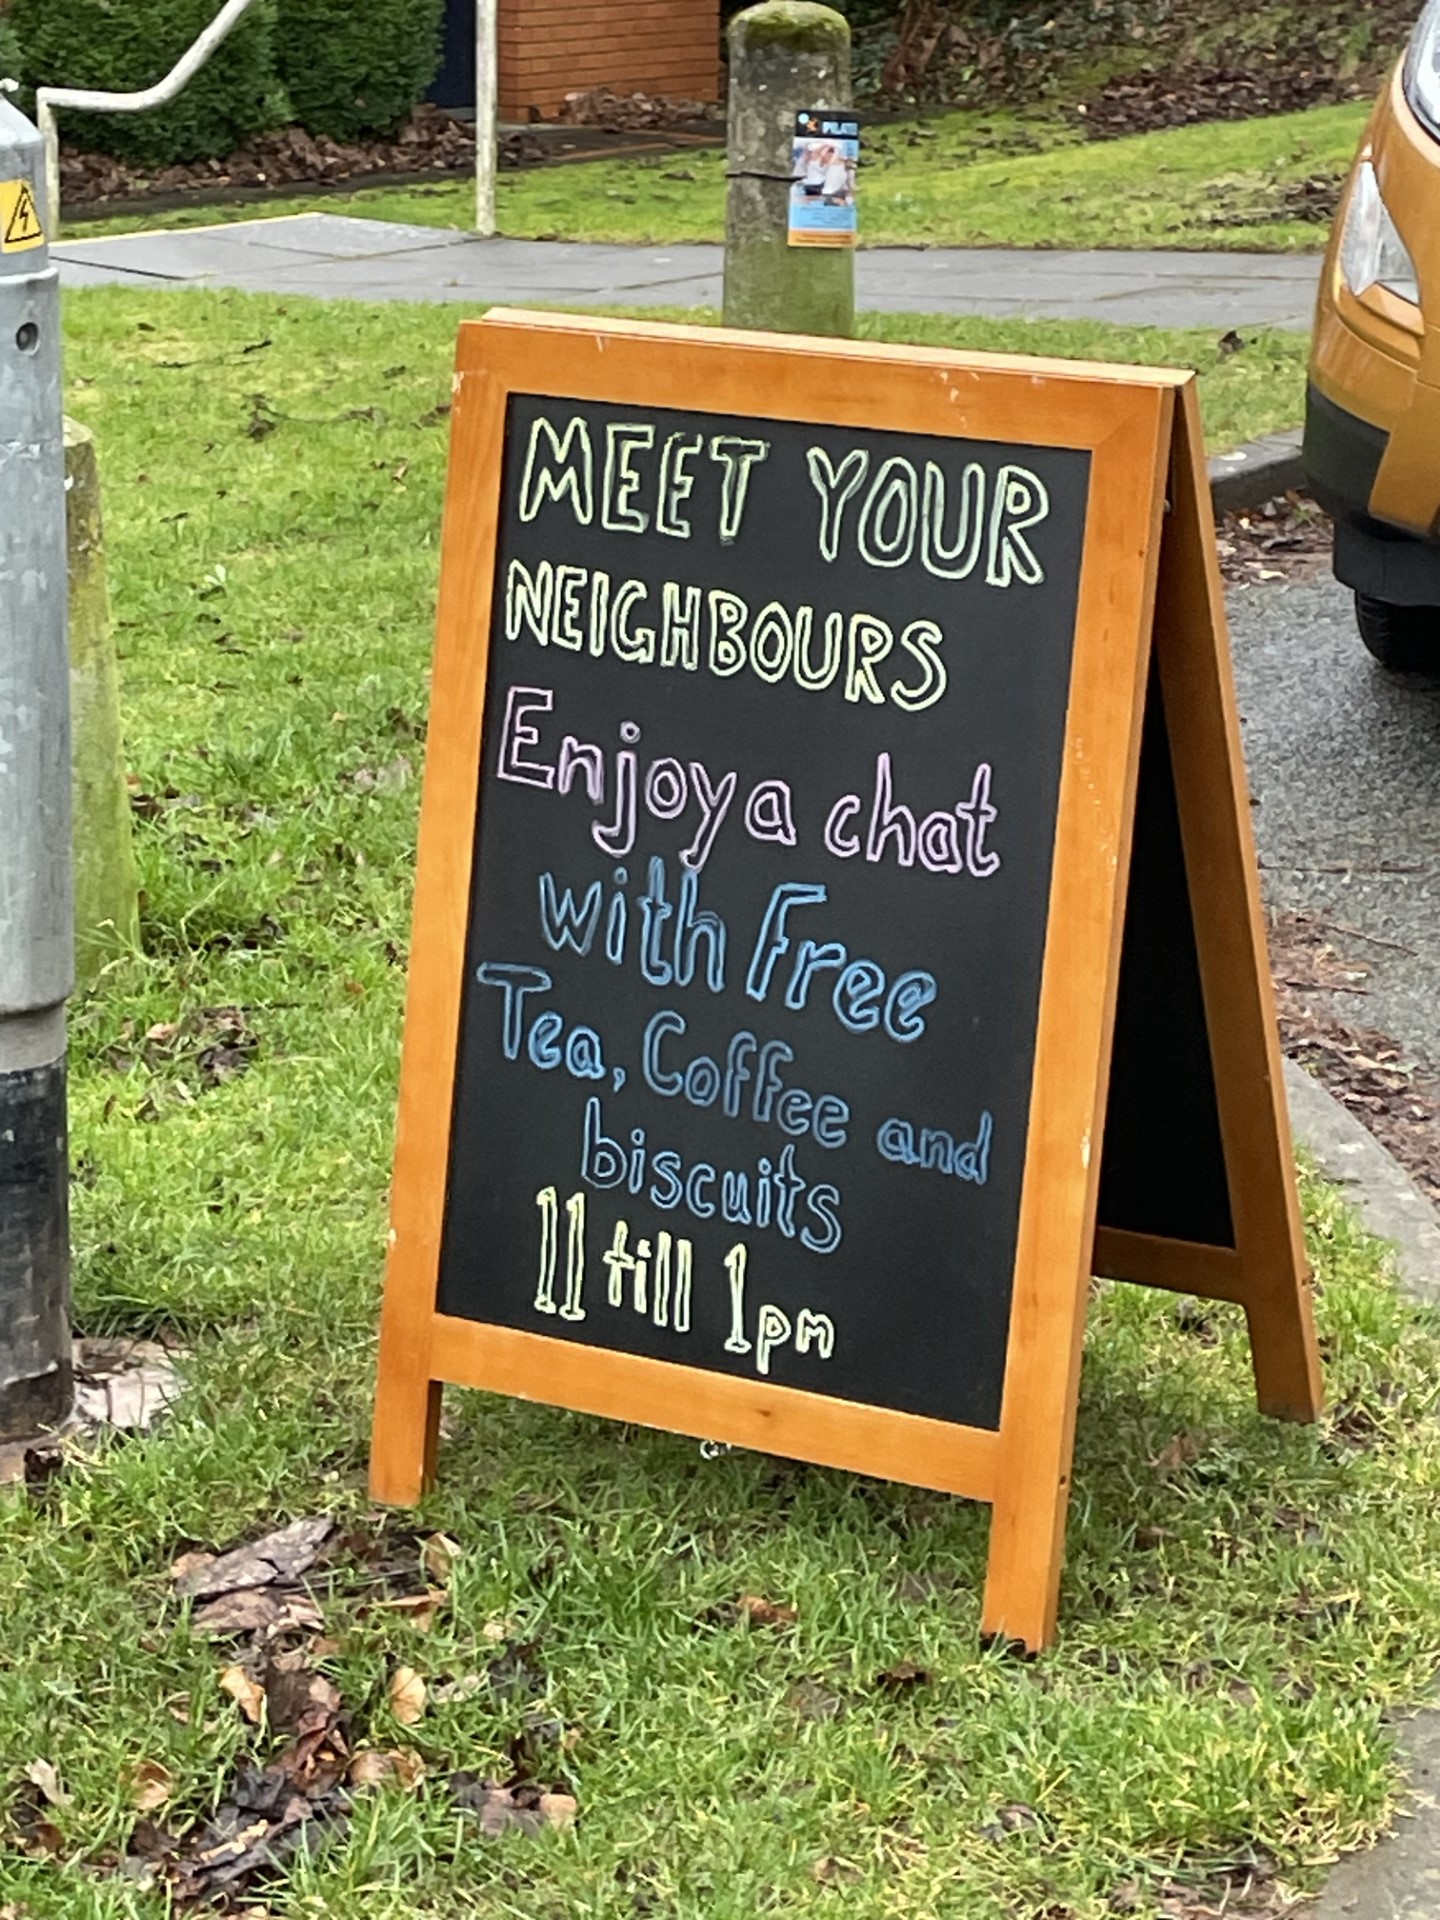 PILATES
MEET YOUR
NEIGHBOURS
Enjoy a chat
with Free
Tea, Coffee and
biscuits
11 till 1pm